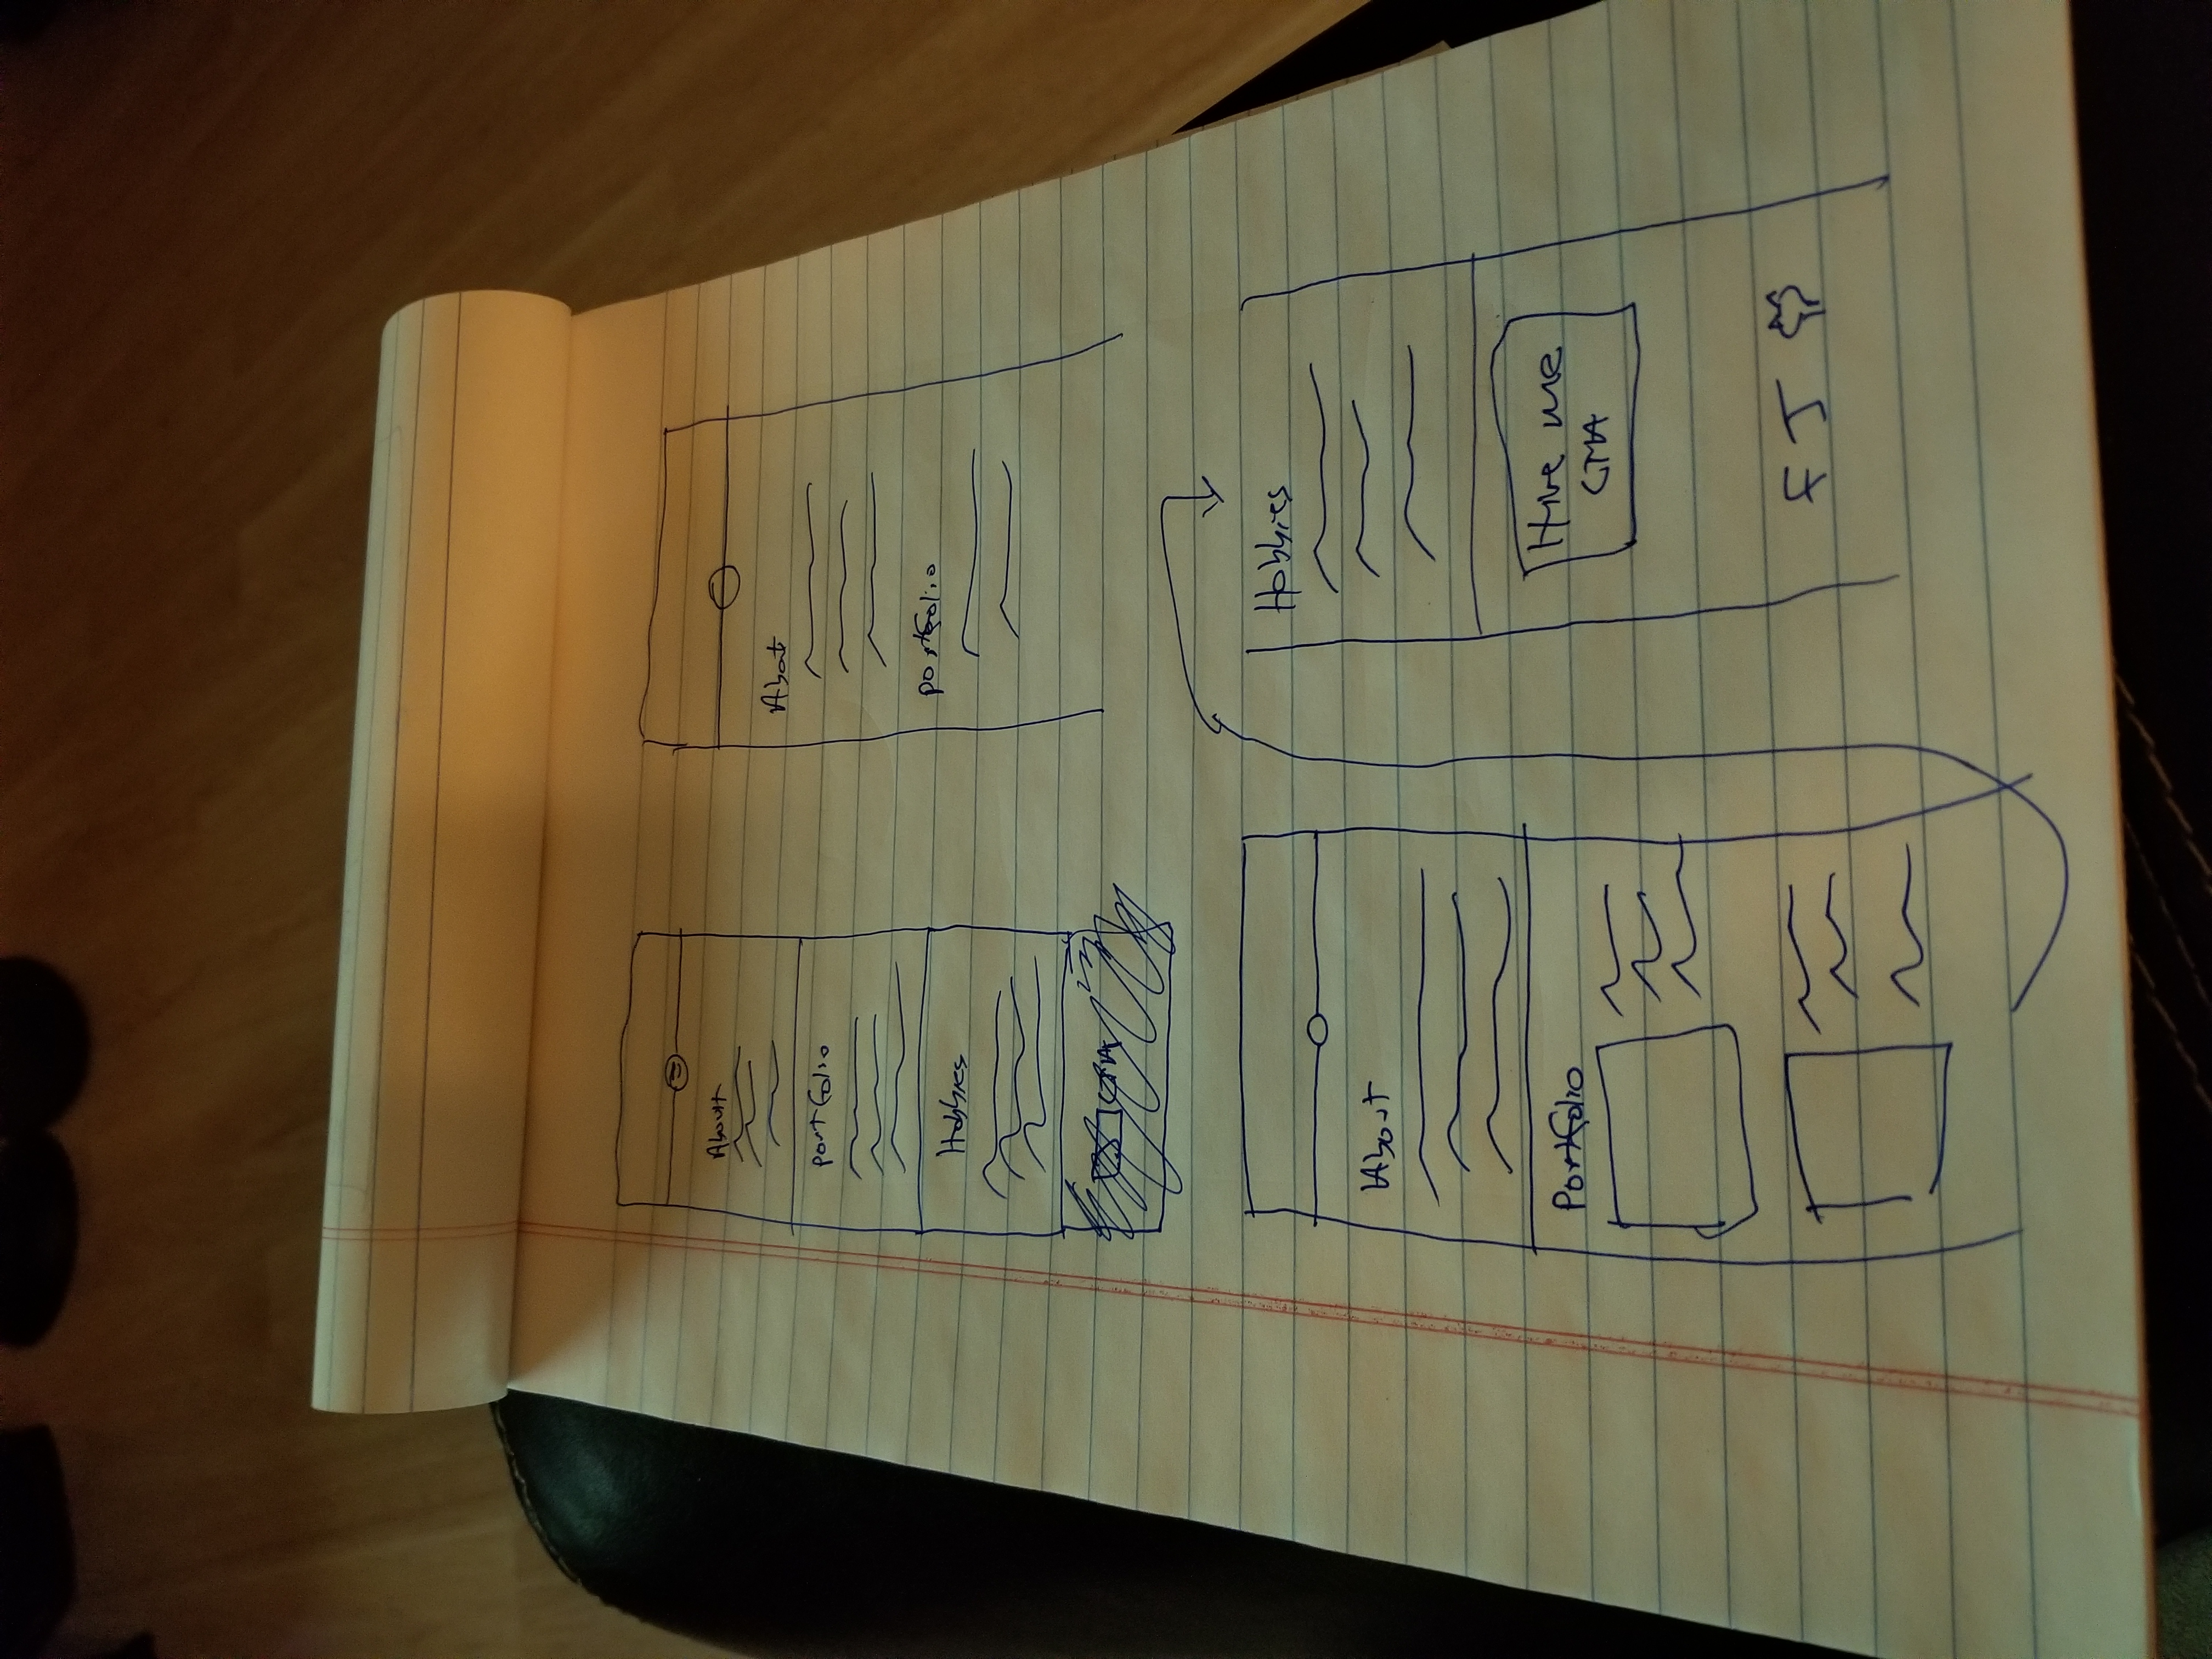 About
Portfolio
Hobbies
CTA
About
Portfolio
About
Portfolio
Hobbies
Hire me
CTA
F J